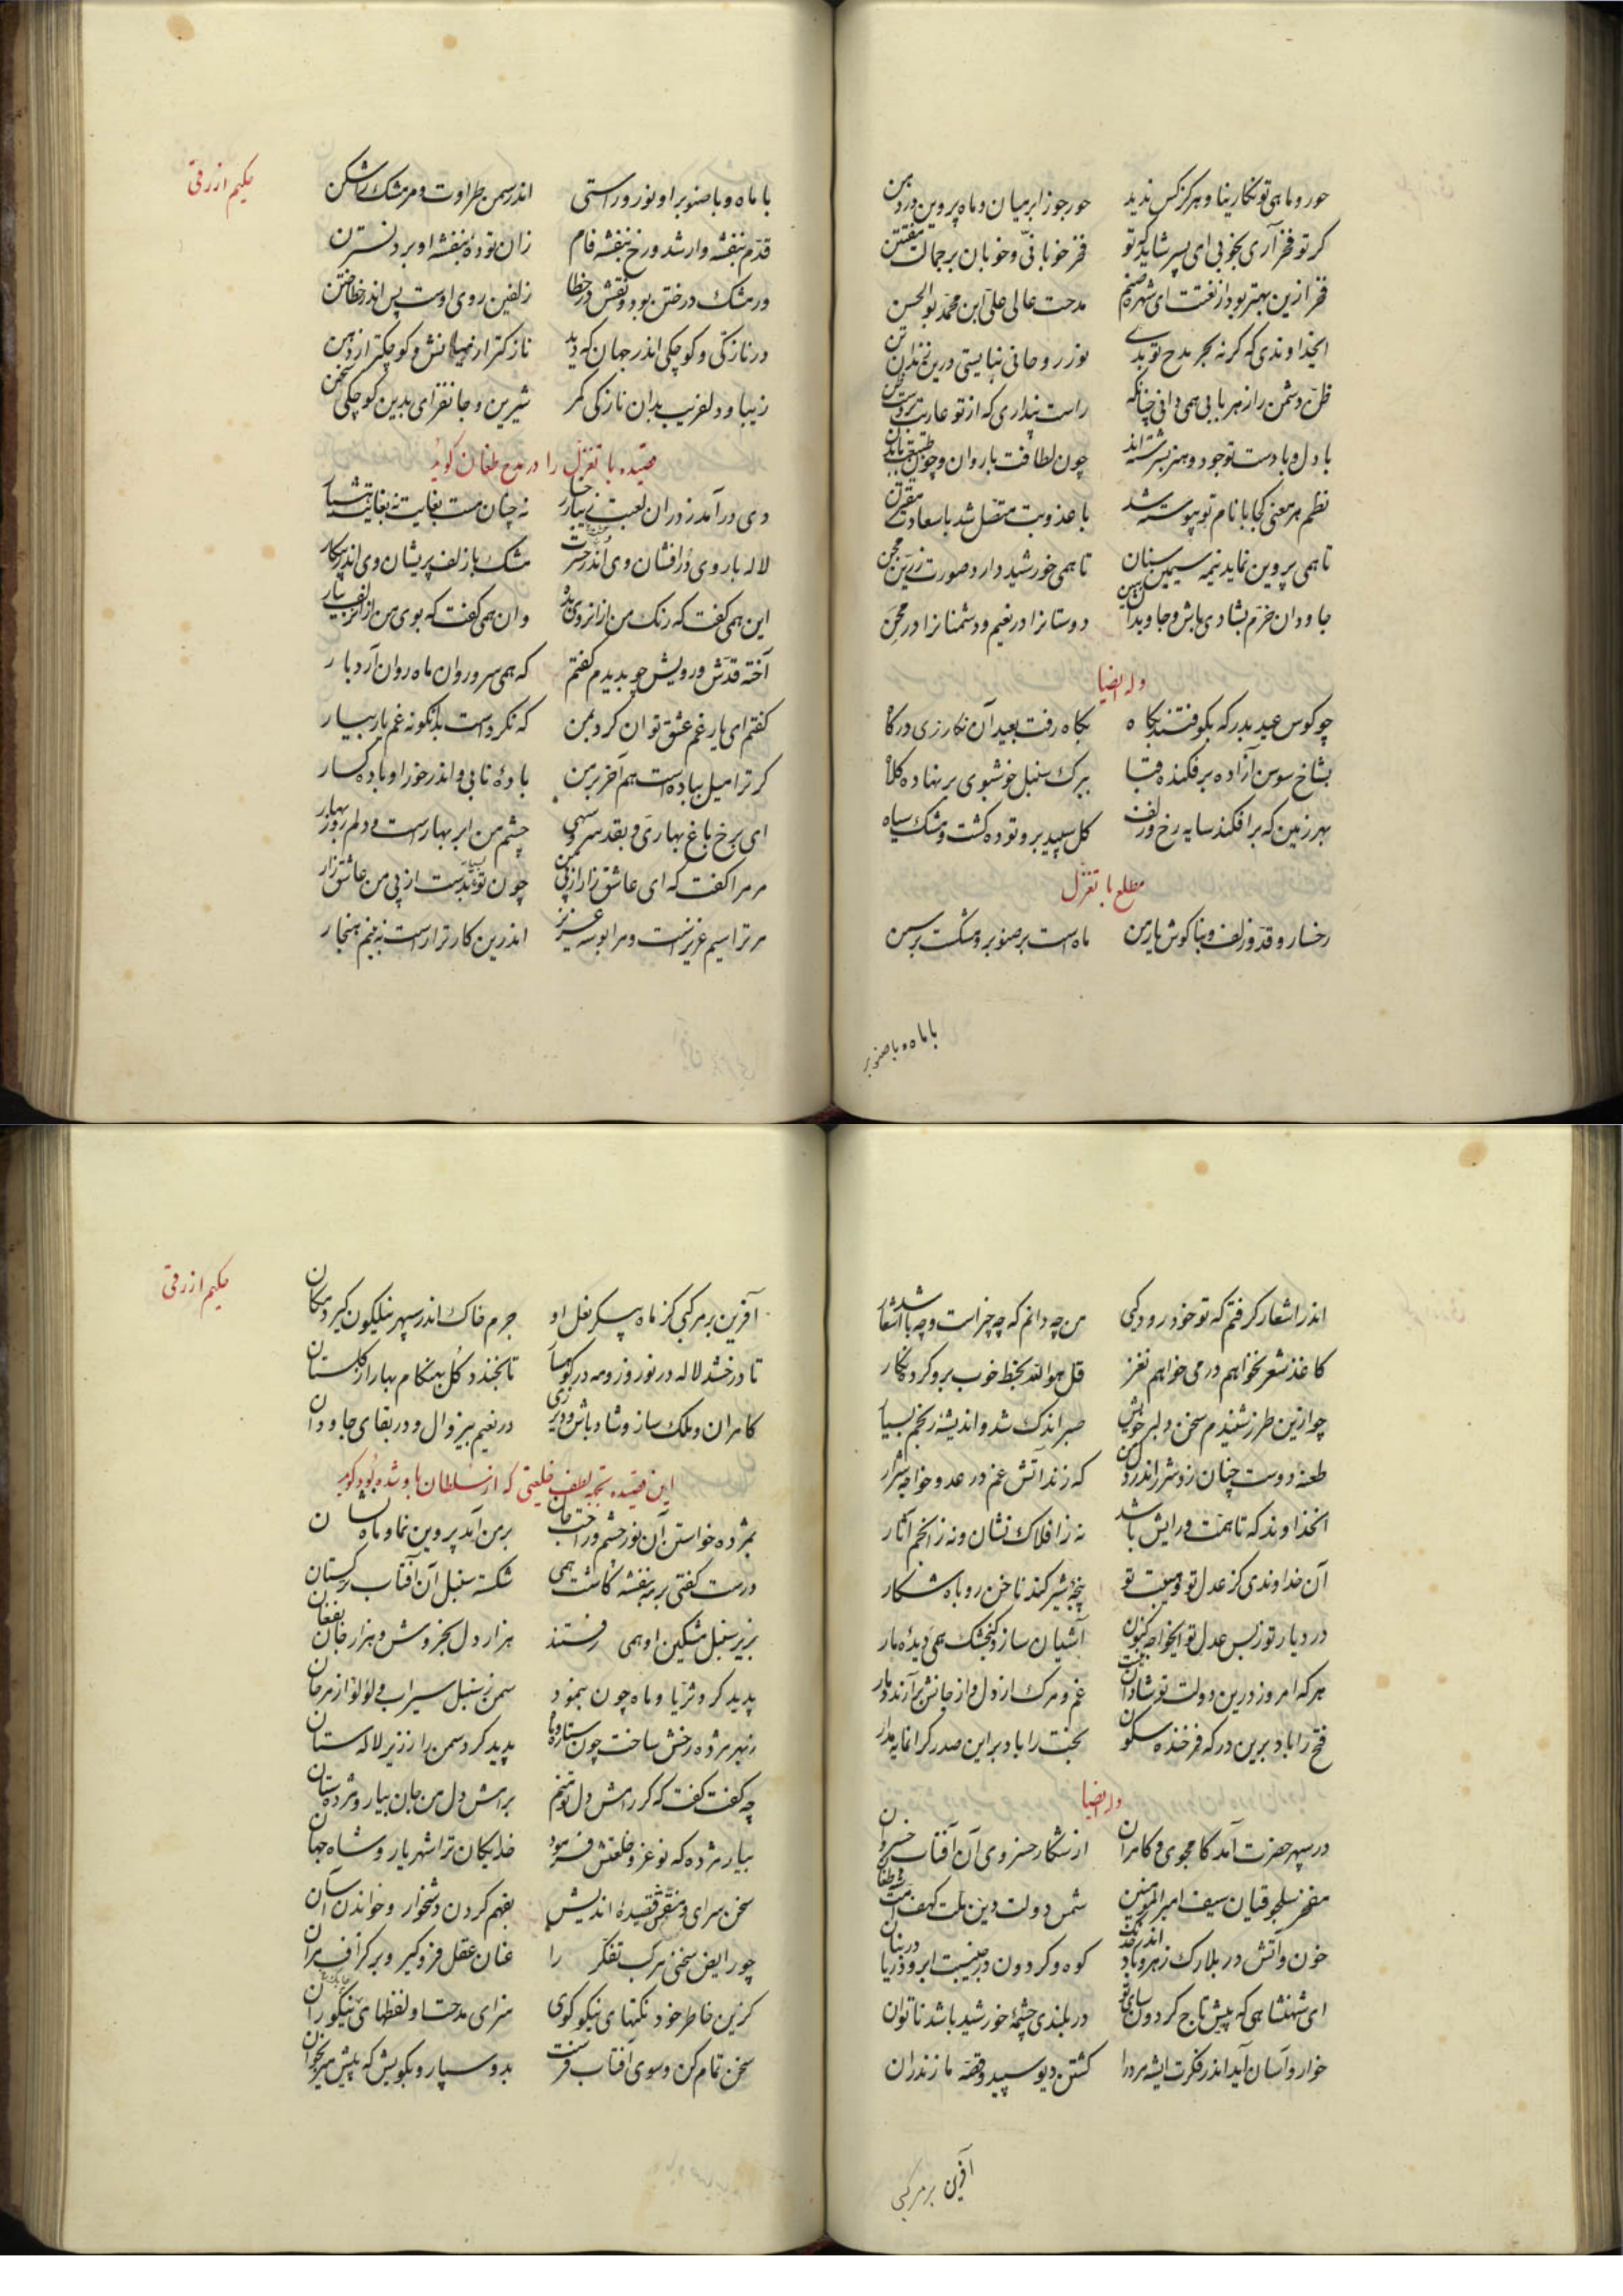 حور و ماهی تو نکارینا و هرکز کس ندید حور جوزا بر میان و ماه پروین در دهن
کر تو فخر آری بخوبی ای پسر شاید که تو فخر خوبانی و خوبان بر جمالت مفتتن
فخر ازین بهتر بود از نعتت ای شهره صنم مدحت عالی علی ابن محمد بوالحسن
ایخداوندی که کر نه بحر مدح تو بدی نور روحانی نبایستی درین زندان تن
ظن دشمن را ز هر بابی همی دانی چنانکه راست پنداری که از تو عاریت بردست ظن
با دل و با دست تو جود و هنر بسرشته‌اند چون لطافت با روان و چون طبیعت با بدن
نظم هر معنی کجا با نام تو پیوسته شد با عذوبت متصل شد با سعادت مقترن
تا همی پروین نماید نیمه سیمین سنان تا همی خورشید دارد صورت زرین مجن
جاودان خرم بشادی باش و جاویدان ببین دوستانرا در نعیم و دشمنانرا در محن
وله ایضا
چو کوس عید بدرکه بکوفتند بکاه بکاه رفت بعید آن نکار زی درکاه
بشاخ سوسن آزاده بر فکنده قبا ببرک سنبل خوشبوی بر نهاده کلاه
بهر زمین که بر افکند سایه رخ و زلف کل سپید برو توده کشت و مشک سیاه
مطلع با تغزل
رخسار و قد و زلف و بناکوش یار من ماه است بر صنوبر و مشکست بر سمن
با ماه و با صنوبر
حکیم ازرقی
با ماه و با صنوبر او نور و راستی اندر سمن طراوت و مر مشک را شکن
قدم بنفشه وار شد و رخ بنفشه فام زان توده بنفشه او بر د نسترن
ور مشک در ختن بود و نقش در خطا زلفین روی اوست پس اندر خطا ختن
در نازکی و کوچکی اندر جهان که دید نازکتر از میانش و کوچکتر از دهن
زیبا و دلفریب بدان نازکی کمر شیرین و جانفزای بدین کوچکی سخن
قصیده با تغزل را در مدح طغان کوید
دی در آمد ز در آن لعبت زیبا رخسار نه چنان مست بغایت نه بغایت هشیار
لاله با روی درافشان وی اندر حسرت مشک با زلف پریشان وی اندر پیکار
این همی کفت که رنک من از انروی بده وان همی کفت که بوی من از آنزلف بیار
آخته قدش و رویش چو بدیدم کفتم که همی سرو روان ماه روان آرد بار
کفتم ای یار غم عشق توان کرد بمن که نکردست بدانکونه غم یار بیار
کر ترا میل بباده است هم آخر بر من باده نابی و اندر خور او باده کسار
ای برخ باغ بهاری و بقد سرو سهی چشم من ابر بهارست و دلم روز بهار
مر مرا کفت که ای عاشق زار از پی من چون تو بسیارست از پی من عاشق زار
مر ترا سیم عزیزست و مرا بوسه عزیز اندرین کار ترا راست نه بینم هنجار
اندر اشعار کرفتم که تو خود رودکیی من چه دانم که چه چیز است و چه باشد اشعار
کاغذ شعر نخواهم درمی خواهم نغز قل هو الله بخط خوب برو کرده نکار
چو ازین طرز شنیدم سخن دلبر خویش صبر اندک شد و اندیشه و رنجم بسیار
طعنه دوست چنان زد شرر اندر دل من که زند آتش غم در عدو خواجه شرار
آنخداوند که تا همت و رایش باشد نه ز افلاک نشان و نه ز انجم آثار
آن خداوندی کز عدل تو و هیبت تو پنجه شیر کند ناخن روباه شکار
در دیار تو ز بس عدل تو ایخواجه کنون آشیان سازد کنجشک همی دیده مار
هر که امروز درین دولت تو شادان نیست غم و مرک از دل و از جانش برآرند دمار
فتح را باد برین درکه فرخنده سکون بخت را باد بر این صدر کرانمایه مدار
وله ایضا
در سپهر حضرت آمد کامجوی و کامران از شکار خسروی آن آفتاب خسروان
مفخر سلجوقیان سیف امیرالمؤمنین شمس دولت دین ملت کهف امت شه طغان
خون و آتش در بلارک زهر و باد اندر خدنک کوه و کردون در جنیبت ابر و دریا در بنان
ای شهنشاهی که پیش تاج کردون سای تو در بلندی چشمه خورشید باشد ناتوان
خوار و آسان آید اندر فکرت ایشه مر ترا کشتن دیو سپید و قصه مازندران
آفرین بر مرکبی
حکیم ازرقی
آفرین بر مرکبی کز ماه پیکر نعل او جرم خاک اندر سپهر نیلکون کیرد مکان
تا درخشد لاله در نوروز و مه در کوهسار تا بخندد کل بهنکام بهار از کلستان
کامران و ملک ساز و شاد باش و دیر زی در نعیم بیزوال و در بقای جاودان
این قصیده بجهة لطف خلعتی که از سلطان باو شده بود کوید
بمژده خواستن آن نور چشم و راحت جان بر من آمد پروین نما و ماه نشان
درست کفتی بر مه بنفشه کاشت همی شکسته سنبل آن آفتاب ترکستان
بزیر سنبل مشکین او همی رفتند هزار دل بخروش و هزار جان بفغان
پدید کرد ثریا و ماه چون بنمود سمن ز سنبل سیراب و لولو از مرجان
ز بهر مژده رخش ساخت چون ستاره و ماه پدید کرد سمن را ز زیر لاله ستان
چه کفت کفت که کر رامش دل تو منم برامش دل من جان بیار و مژده ستان
بیار مژده که نو عز و خلعتش فرمود خدایکان ترا شهریار و شاه جهان
سخن سرای و منقح قصیده اندیش بفهم کردن دشخوار و خواندن آسان
چو رایض سخنی مرکب تفکر را عنان عقل فرو کیر و بر کزاف مران
کزین خاطر خود نکتهای نیکو کوی سزای مدحت او لفظهای نیکو ران
سخن تمام کن و سوی آفتاب فرست بدو سپار و بکویش که پیش میر بخوان